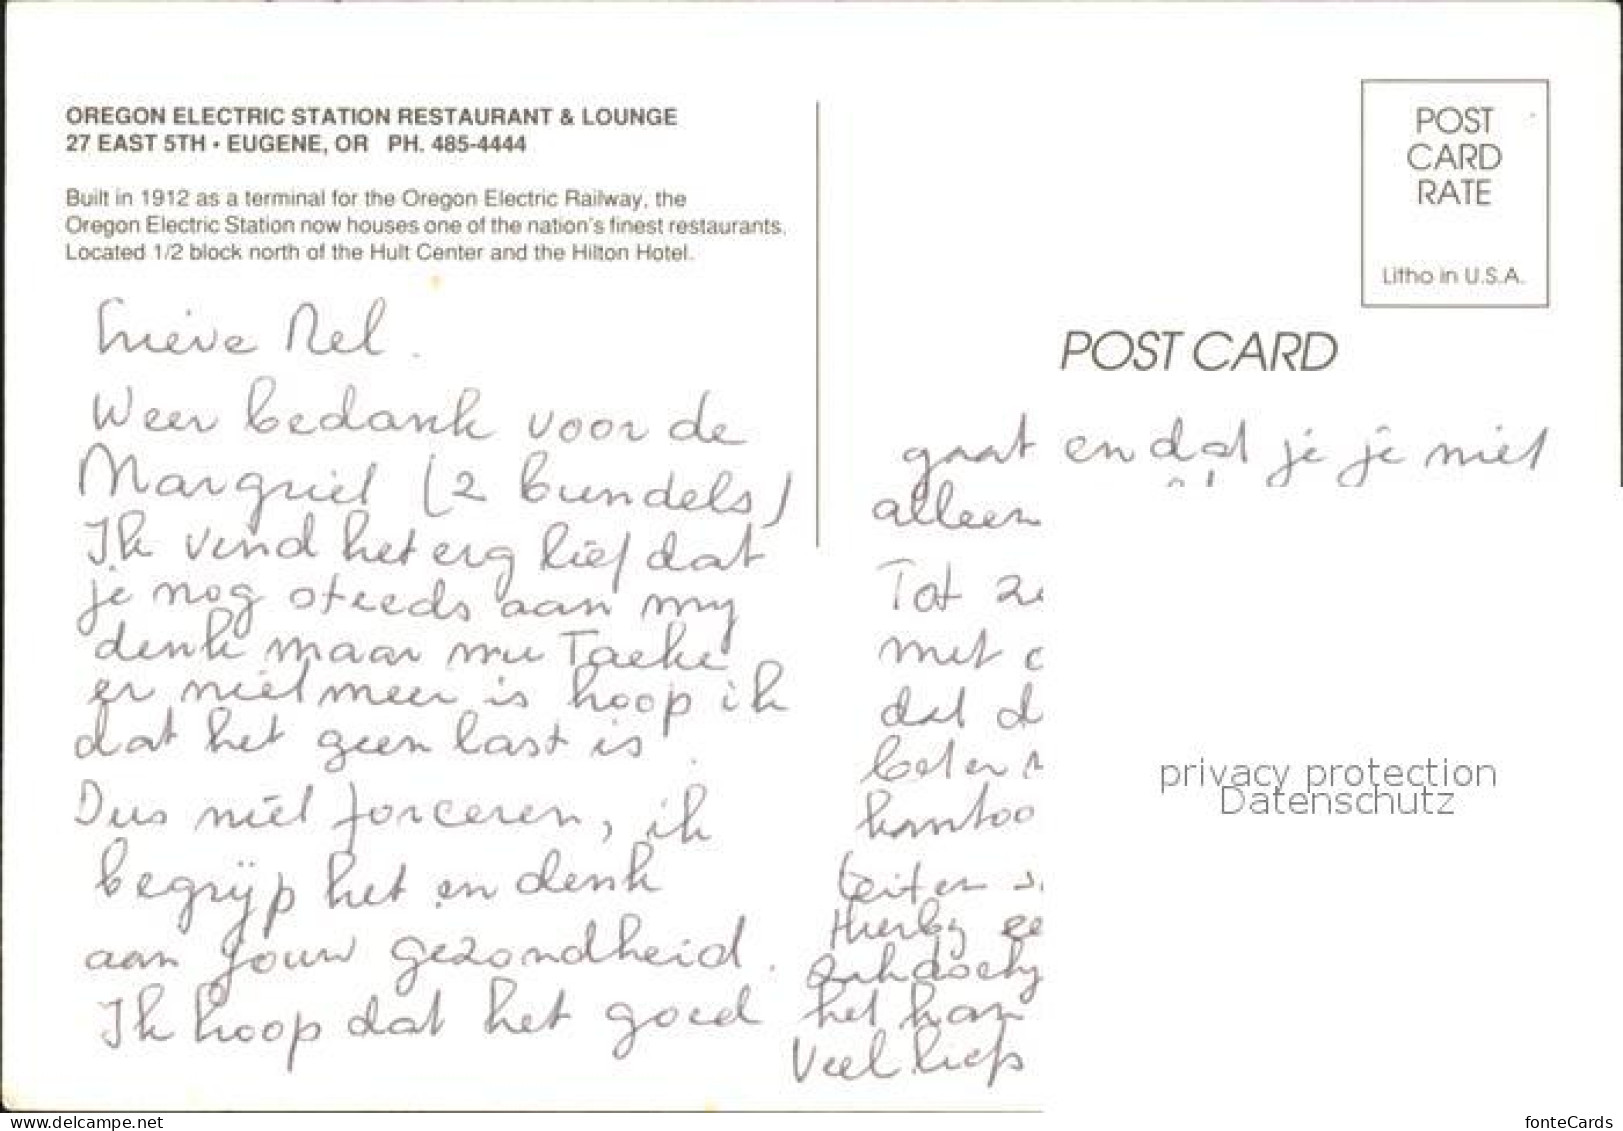 OREGON ELECTRIC STATION RESTAURANT & LOUNGE
27 EAST 5TH • EUGENE, OR PH. 485-4444
Built in 1912 as a terminal for the Oregon Electric Railway, the
Oregon Electric Station now houses one of the nation's finest restaurants.
Located 1/2 block north of the Hult Center and the Hilton Hotel.
Lieve Nel.
Weer bedankt voor de
Margriet (2 bundels)
Ik vind het erg lief dat
je nog steeds aan my
denk maar nu Taeke
er niet meer is hoop ik
dat het geen last is.
Dus niet forceren, ik
begrijp het en denk
aan jouw gezondheid.
Ik hoop dat het goed
POST
CARD
RATE
Litho in U.S.A.
POST CARD
gaat en dat je je niet
alleen
Tot
met
dat d
beter
kantoo
Hierby ee
het kan
Veel liefs
privacy protection
Datenschutz
www.delcampe.net
fonteCards